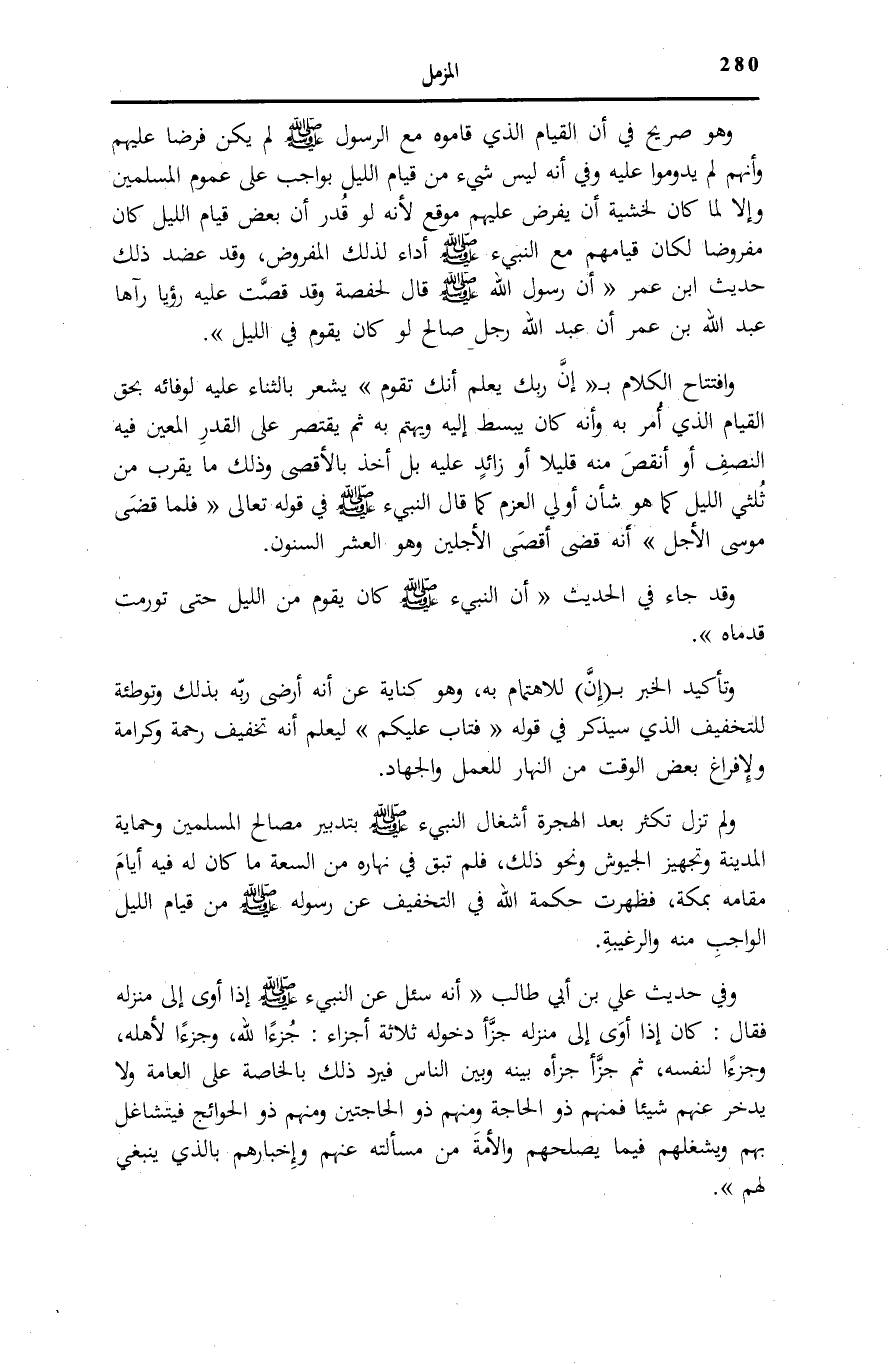 280
المزمل
وهو صريح في أن القيام الذي قاموه مع الرسول ﷺ لم يكن فرضا عليهم
وأنهم لم يدوموا عليه وفي أنه ليس شيء من قيام الليل بواجب على عموم المسلمين
وإلا لما كان لخشية أن يفرض عليهم موقع لأنه لو قُدر أن بعض قيام الليل كان
مفروضا لكان قيامهم مع النبيء ﷺ أداء لذلك المفروض، وقد عضد ذلك
حديث ابن عمر « أن رسول الله ﷺ قال لحفصة وقد قصَّت عليه رؤيا رآها
عبد الله بن عمر أن عبد الله رجل صالح لو كان يقوم في الليل ».
وافتتاح الكلام بـ« إنَّ ربك يعلم أنك تقوم » يشعر بالثناء عليه لوفائه بحق
القيام الذي أُمر به وأنه كان يبسط إليه ويهتم به ثم يقتصر على القدرِ المعين فيه
النصفِ أو أنقصَ منه قليلا أو زائدٍ عليه بل أخذ بالأقصى وذلك ما يقرب من
ثُلثي الليل كما هو شأن أولي العزم كما قال النبيء ﷺ في قوله تعالى « فلما قضَى
موسى الأجل » أنه قضى أقصَى الأجلين وهو العشر السنون.
وقد جاء في الحديث « أن النبيء ﷺ كان يقوم من الليل حتى تورمت
قدماه ».
وتأكيد الخبر بـ(إِنَّ) للاهتمام به، وهو كناية عن أنه أرضى ربّه بذلك وتوطئة
للتخفيف الذي سيذكر في قوله « فتاب عليكم » ليعلم أنه تخفيف رحمة وكرامة
ولإفراغ بعض الوقت من النهار للعمل والجهاد.
ولم تزل تكثر بعد الهجرة أشغال النبيء ﷺ بتدبير مصالح المسلمين وحماية
المدينة وتجهيز الجيوش ونحو ذلك، فلم تبق في نهاره من السعة ما كان له فيه أيامَ
مقامه بمكة، فظهرت حكمة الله في التخفيف عن رسوله ﷺ من قيام الليل
الواجبِ منه والرغيبةِ.
وفي حديث علي بن أبي طالب « أنه سئل عن النبيء ﷺ إذا أوى إلى منزله
فقال : كان إذا أوَى إلى منزله جزَّأ دخوله ثلاثة أجزاء : جُزءًا لله، وجزءًا لأهله،
وجزءًا لنفسه، ثم جزَّأ جزأه بينه وبين الناس فيرد ذلك بالخاصة على العامة ولا
يدخر عنهم شيئا فمنهم ذو الحاجة ومنهم ذو الحاجتين ومنهم ذو الحوائج فيتشاغل
بهم ويشغلهم فيما يصلحهم والأمةَ من مسألته عنهم وإخبارهم بالذي ينبغي
لهم ».